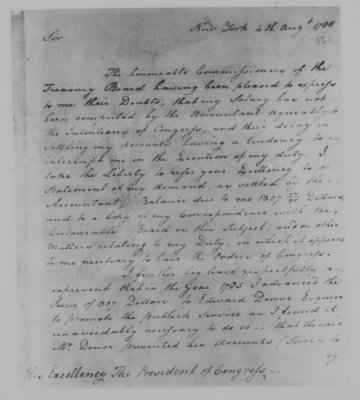 New York 4th Augt 1788
Sir
The honourable Commissioners of the
Treasury Board having been pleased to express
to me their Doubts, that my Salary has not
been computed by the Accountant agreeably to
the Intentions of Congress, and their delay in
settling my accounts having a tendency to
interrupt me in the Execution of my duty. I
take the Liberty to refer your Excellency to a
Statement of my demand, as settled by the
Accountant, Balance due to me 1307 Dollars,
and to a Copy of my Correspondence with the
honourable Board on this Subject, and on other
Matters relating to my Duty, in which it appears
to me necessary to have the Orders of Congress.
I further beg leave respectfully to
represent that in the Year 1785 I advanced the
Sum of 307 Dollars to Edward Dowse Esquire
to promote the Publick Service as I found it
unavoidably necessary to do so -- that the said
Mr. Dowse presented his Accounts (Sworn to
by
His Excellency The President of Congress